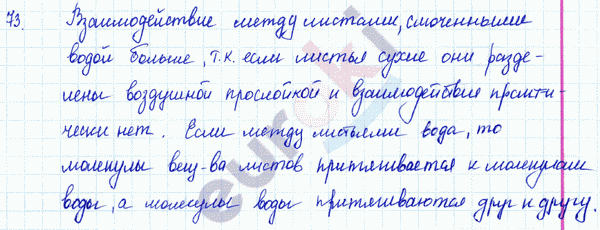 73. Взаимодействие между листами, смоченными
водой больше, т.к. если листья сухие они разде-
лены воздушной прослойкой и взаимодействия практи-
чески нет. Если между листьями вода, то
молекулы вещ-ва листов притягивается к молекулам
воды, а молекулы воды притягиваются друг к другу.
euroki